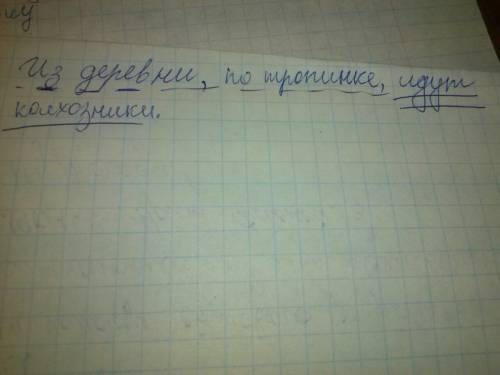 Из деревни, по тропинке, идут
колхозники.